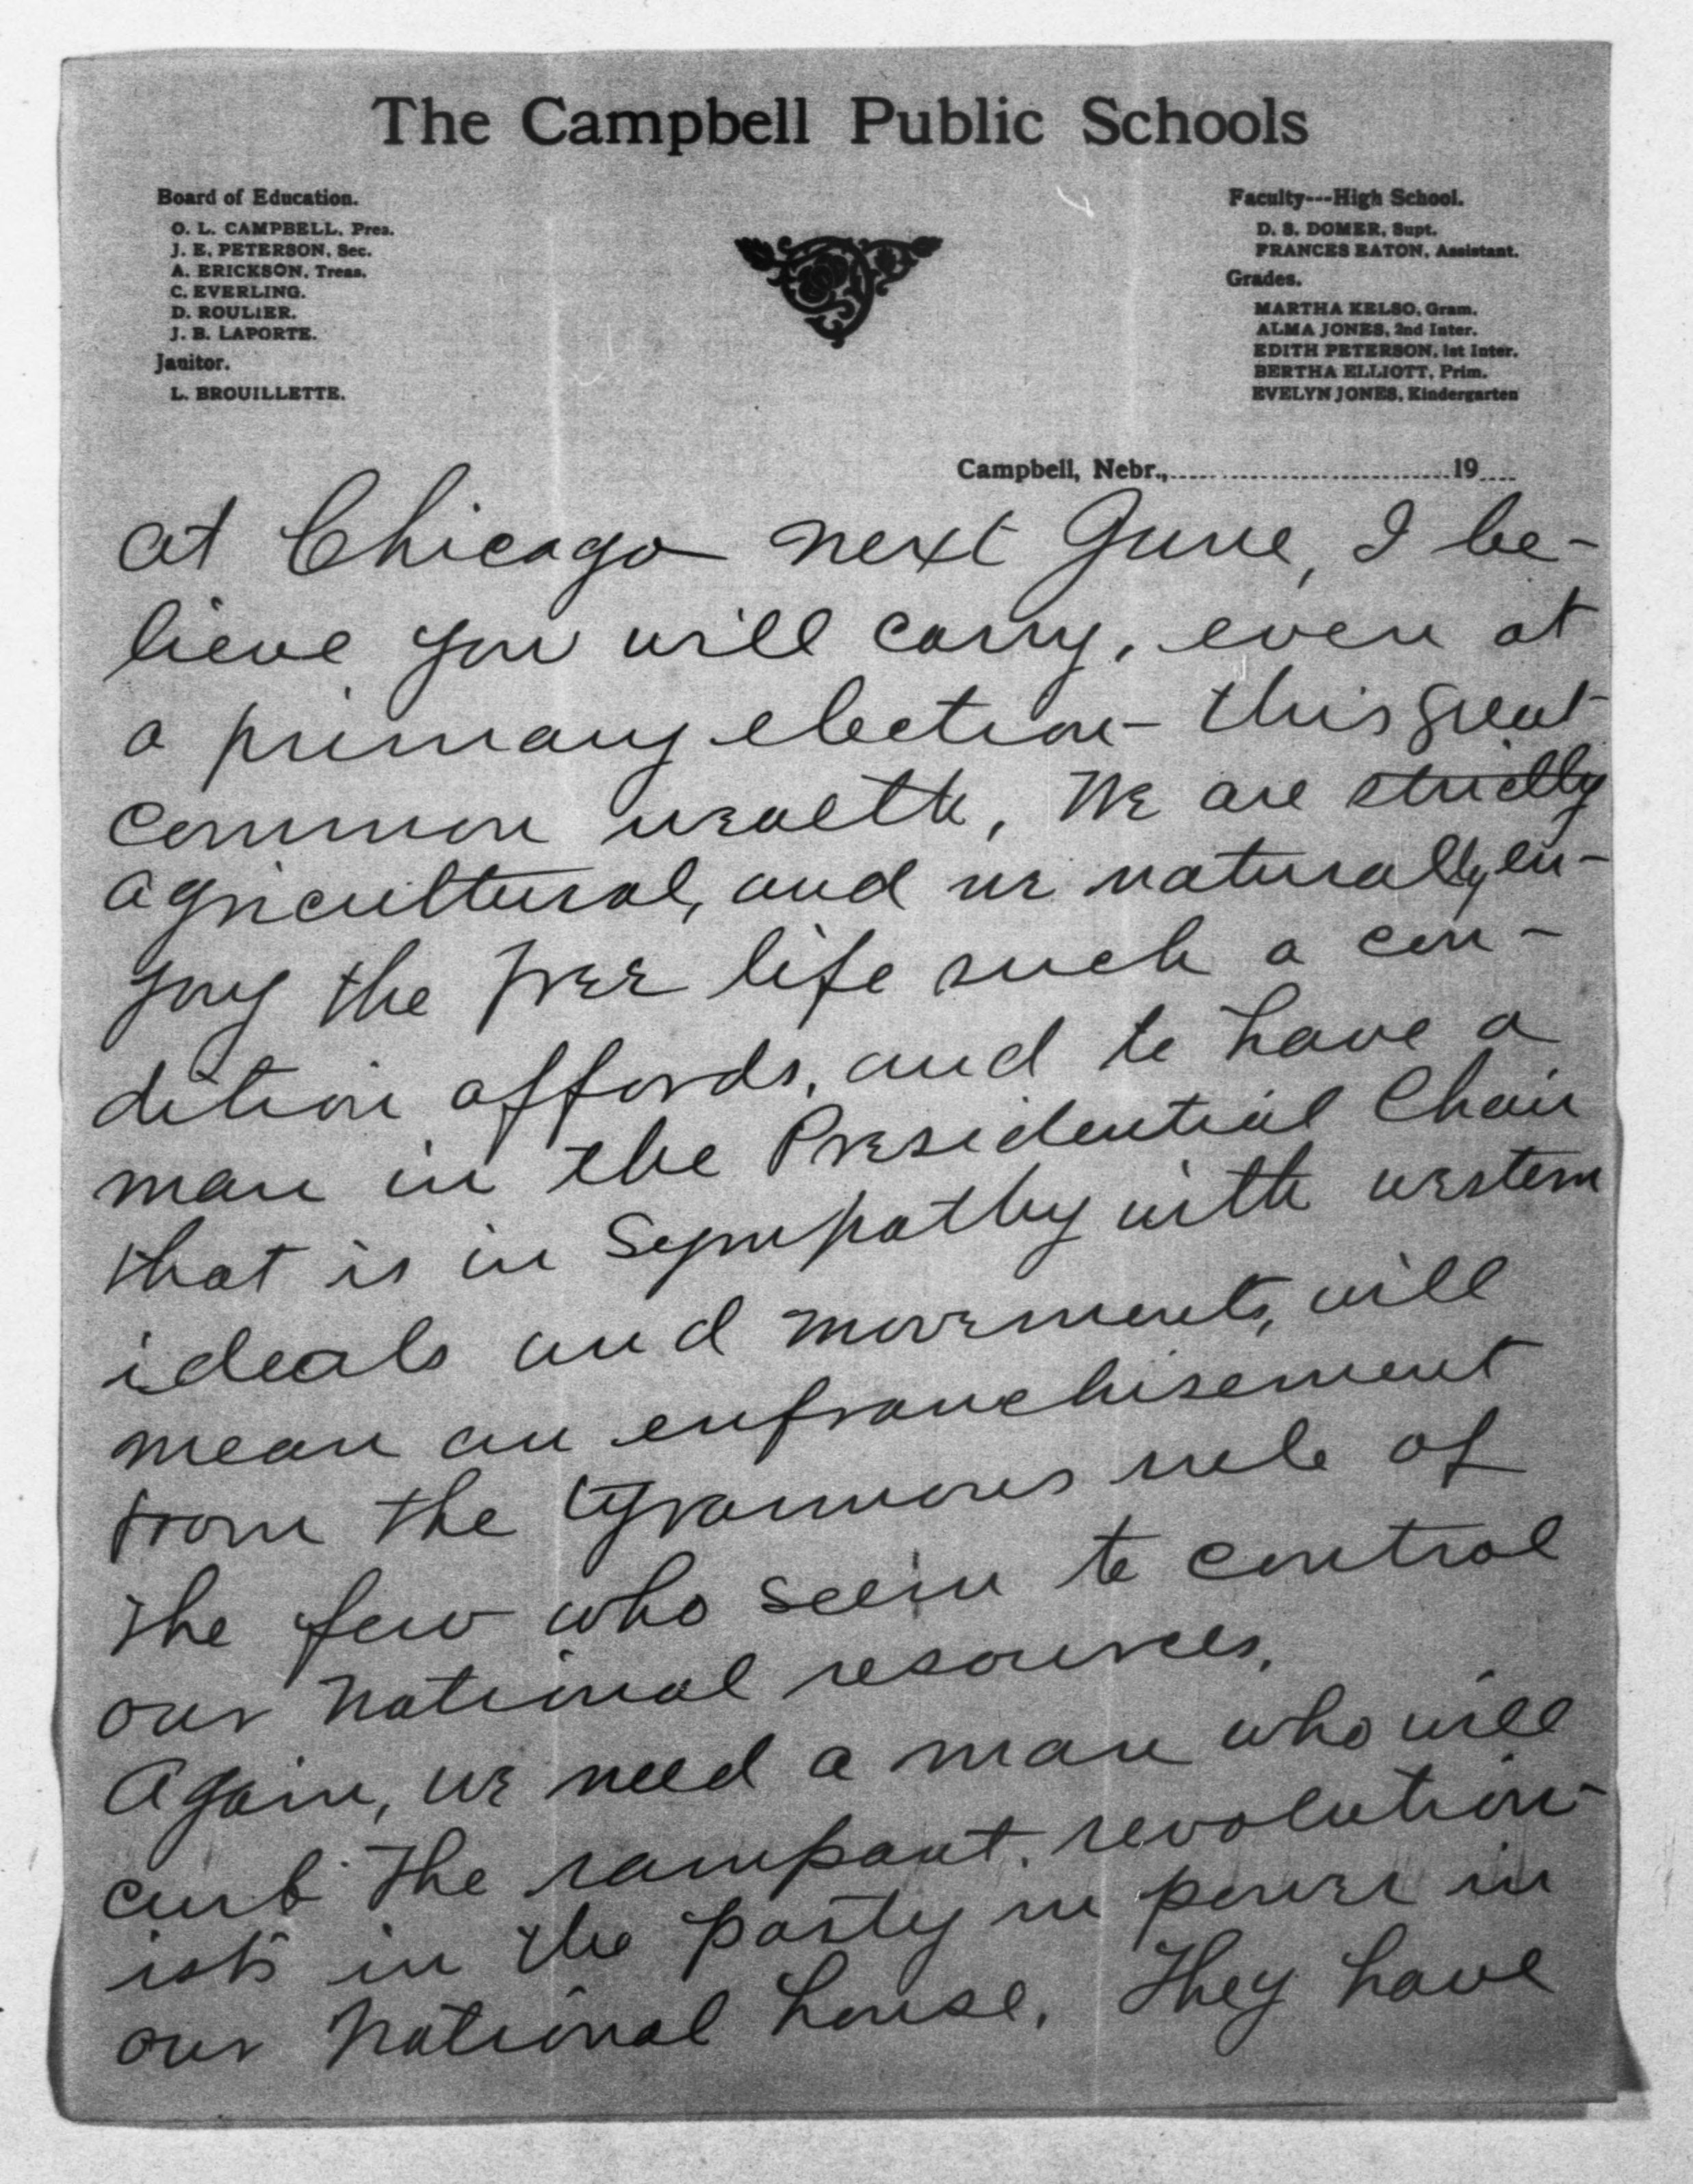 The Campbell Public Schools
Board of Education.
O. L. CAMPBELL, Pres.
J. E. PETERSON, Sec.
A. ERICKSON, Treas.
C. EVERLING.
D. ROULIER.
J. B. LAPORTE.
Janitor.
L. BROUILLETTE.
Faculty---High School.
D. S. DOMER, Supt.
FRANCES EATON, Assistant.
Grades.
MARTHA KELSO, Gram.
ALMA JONES, 2nd Inter.
EDITH PETERSON, 1st Inter.
BERTHA ELLIOTT, Prim.
EVELYN JONES, Kindergarten
Campbell, Nebr.,..............................19....
at Chicago next June, I be-
lieve you will carry, even at
a primary election- this great
common wealth, We are strictly
agricultural, and we naturally en-
joy the free life such a con-
dition affords, and to have a
man in the Presidential Chair
that is in sympathy with western
ideals and movements, will
mean an enfranchisement
from the tyrannous rule of
the few who seem to control
our National resources.
Again, we need a man who will
curb the rampant revolution-
ists in the party in power in
our National house. They have